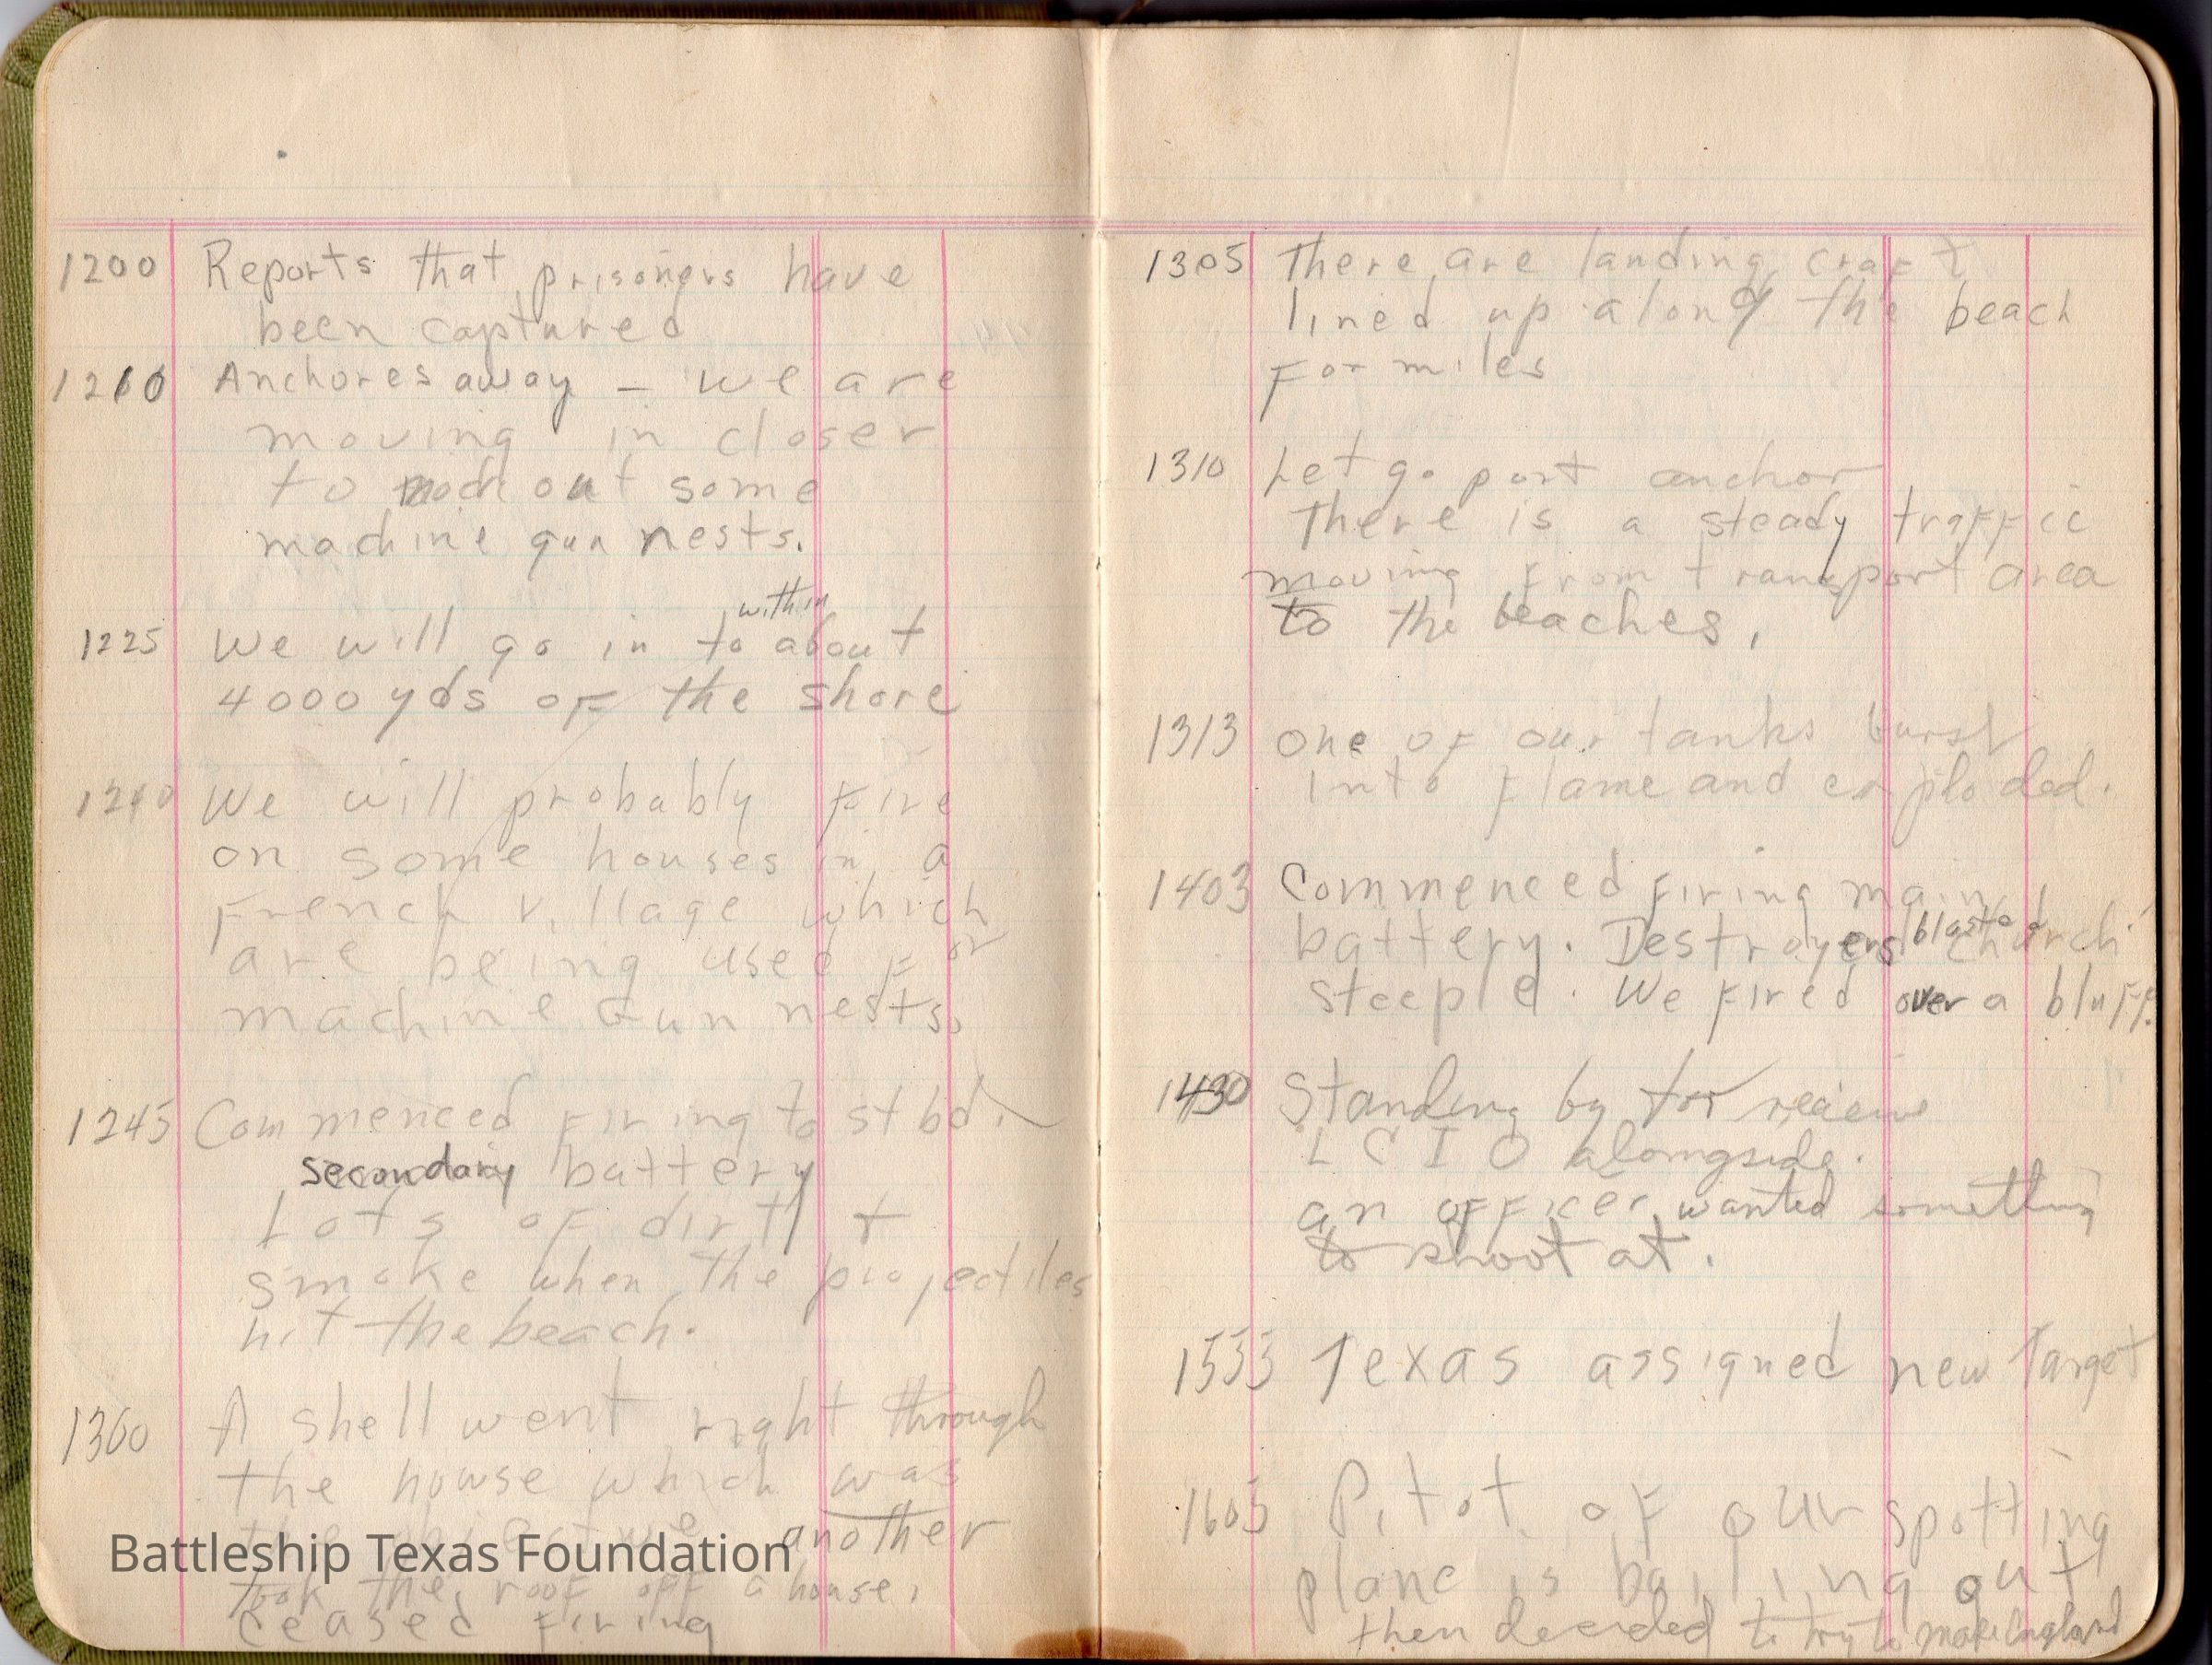 1200 Reports that prisoners have
been captured
1210 Anchores away - we are
moving in closer
to out some
machine gun nests.
within
1225 We will go in to about
4000 yds of the shore
1240 We will probably fire
on some houses in a
French village which
are being used for
machine Gun nests.
1245 Commenced firing to stbd.
secondary battery
Lots of dirt +
smoke when the projectiles
hit the beach.
1300 A shell went right through
the house which was
the objective another
took the roof off a house.
ceased firing
Battleship Texas Foundation
1305 There are landing craft
lined up along the beach
for miles
1310 Let go port anchor
There is a steady traffic
moving from transport area
to the beaches.
1313 One of our tanks burst
into flame and exploded.
1403 Commenced firing main
battery. Destroyers blasted church
steeple. We fired over a bluff.
1430 Standing by for recieve
L C I O alongside.
an officer wanted something
to shoot at.
1533 Texas assigned new Target
1605 Pilot of our spotting
plane is bailing out
then decided to try to make England